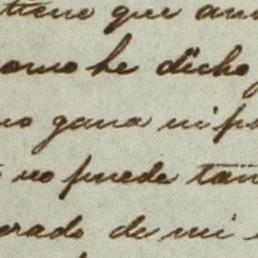 tiene que an
omo he dicho
no gana ni pa
no puede tan
erado de mi